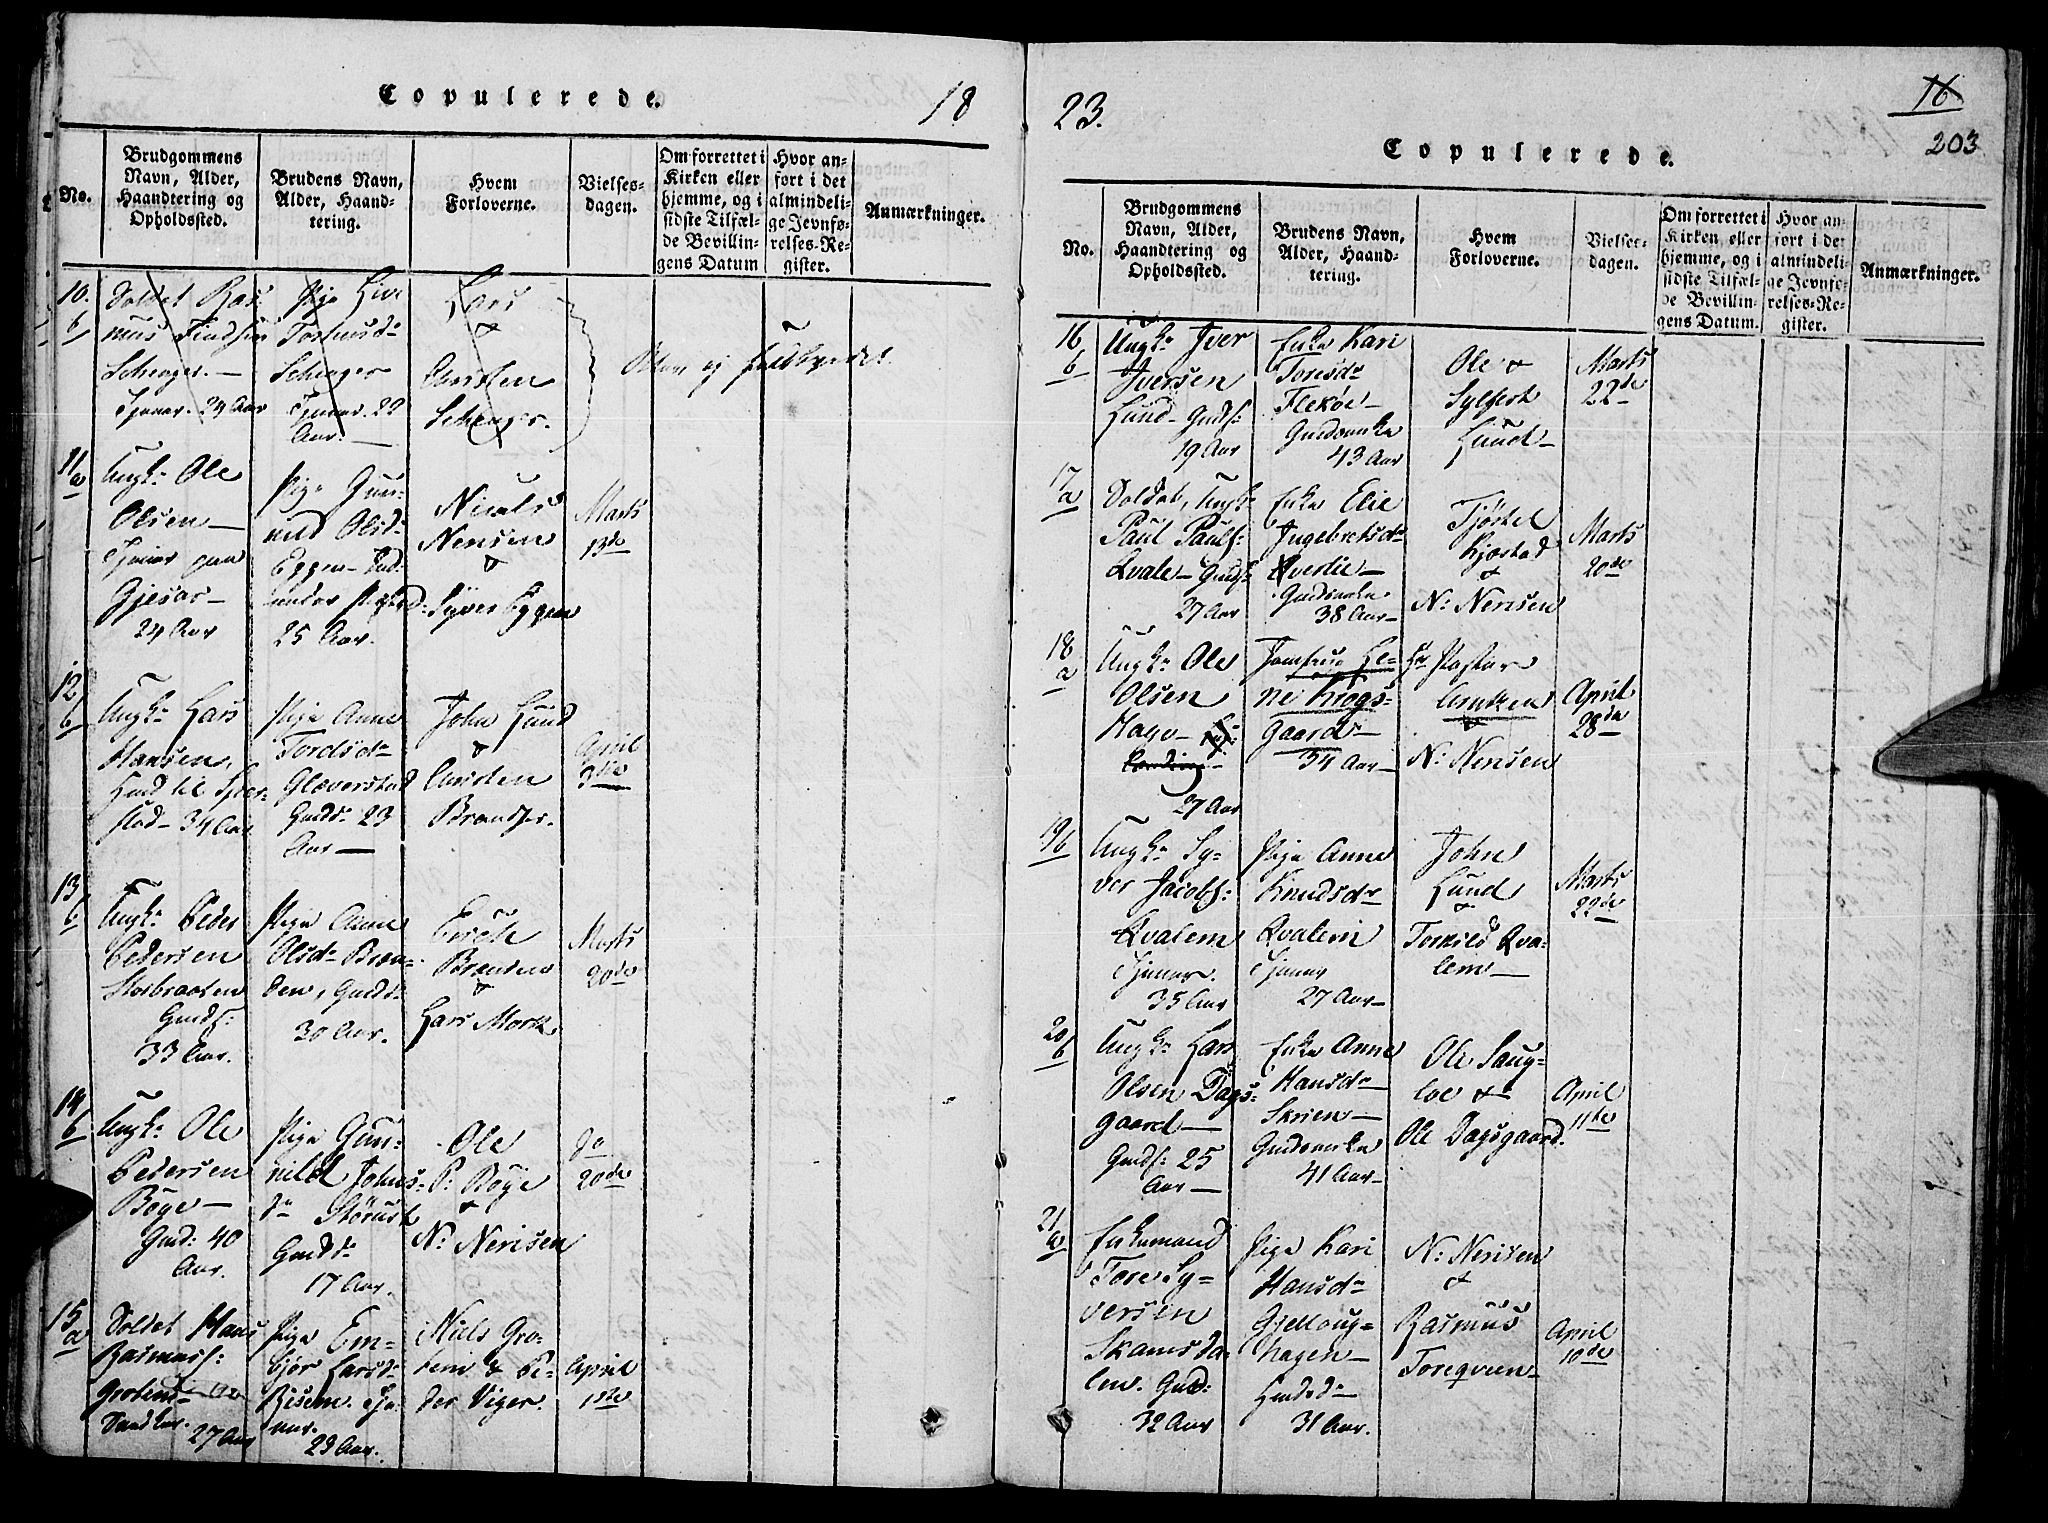 Copulerede.
18
No.
Brudgommens
Navn, Alder,
Haandtering og
Opholdssted.
Brudens Navn,
Alder, Haand-
tering.
Hvem
Forloverne.
Vielses-
dagen.
Om forrettet i
Kirken eller
hjemme, og i
sidste Tilfæl-
de Bevillin-
gens Datum
Hvor an-
ført i det
almindeli-
ge Jevnfø-
relses-Re-
gister.
Anmærkninger.
10.
b
Soldat Ras-
mus Findsen
Schenger. —
Tjener. 24 Aar
Pige Live
Tostensdr
Schenger
Tjener. 22
Aar. —
Lars
&
Christen
Schenger.
Blev ej fuldbyrdet.
11
a
Ungk: Ole
Olsen —
Tjener paa
Gjesar —
24 Aar
Pige Gun-
nild Olsdr
Eggen
25 Aar.
Niels
Nerisen
&
Syver Eggen
Marts
13de
12
b
Ungk: Lars
Hansen,
34 Aar
Pige Anne
Tordsdr
Glæverstad
Gmdsdr 23
Aar —
John Lund
&
Carsten
Brandser.
April
3die
13
b
Ungk: Peder
Pedersen
Storbraaten
Gmds:
33 Aar.
Pige Anne
Olsdr Bræn-
den, Gmdsdr
30 Aar.
Erich
Brænden
&
Lars Mork
Marts
20de
14
b
Ungk: Ole
Pedersen
Böge —
Gmd: 40
Aar.
Pige Gun-
nild Johns-
dr Störust
Gmdsdr
17 Aar.
Ole
P: Böge
&
N: Nerisen
do
20de
15
a
Soldat Hans
Rasmus:
27 Aar
Pige Em-
bjør Larsdr
Bisem. Tje-
ner.
29 Aar.
Niels Gro-
tem & Pe-
der Viger.
April
1ste
23.
16
203
Copulerede.
No.
Brudgommens
Navn, Alder,
Haandtering og
Opholdssted.
Brudens Navn,
Alder, Haand-
tering.
Hvem
Forloverne.
Vielses-
dagen.
Om forrettet i
Kirken, eller
hjemme, og i
sidste Tilfæl-
de Bevillin-
gens Datum.
Hvor an-
ført i det
almindeli-
ge Jevnfø-
relses-Re-
gister.
Anmærkninger.
16
b
Ungk: Iver
Iversen
Lund - Gmds:
19 Aar
Enke Kari
Toresdr
Flekøe —
Gmdsenke
43 Aar
Ole &
Sylfest
Lund —
Marts
22de
17
a
Soldat, Ungk:
Paul Pauls:
Qvale — Gmds:
27 Aar
Enke Elie
Ingebretsdr
Qverlie —
Gmdsenke
38 Aar —
Tjøstel
Kjøstad
&
N: Nerisen
Marts
20de
18
a
Ungk: Ole
Olsen
Hage —
27 Aar
Jomfrue He-
ne Krogs-
gaard —
34 Aar —
Hr Pastor
&
N: Nerisen
April
28de
19
b
Ungk: Sy-
ver Jacobs:
Qvalem
Tjener.
35 Aar
Pige Anne
Knudsdr
Qvalem
Tjener
27 Aar —
John
Lund
&
Torkild Qva-
lem —
Marts
22de
20
b
Ungk: Lars
Olsen Dags-
gaard —
Gmds: 25
Aar —
Enke Anne
Hansdr
Skrien —
Gmdsenke
41 Aar —
Ole Saug-
loe &
Ole Dagsgaard.
April
11te
21
a
Enkemand
Tore Sy-
versen
Skamsda-
len. Gmd:
32 Aar
Pige Kari
Hansdr
Gjelloug-
hagen —
31 Aar.
N: Nerisen
&
Rasmus
Toreqveen —
April
10de